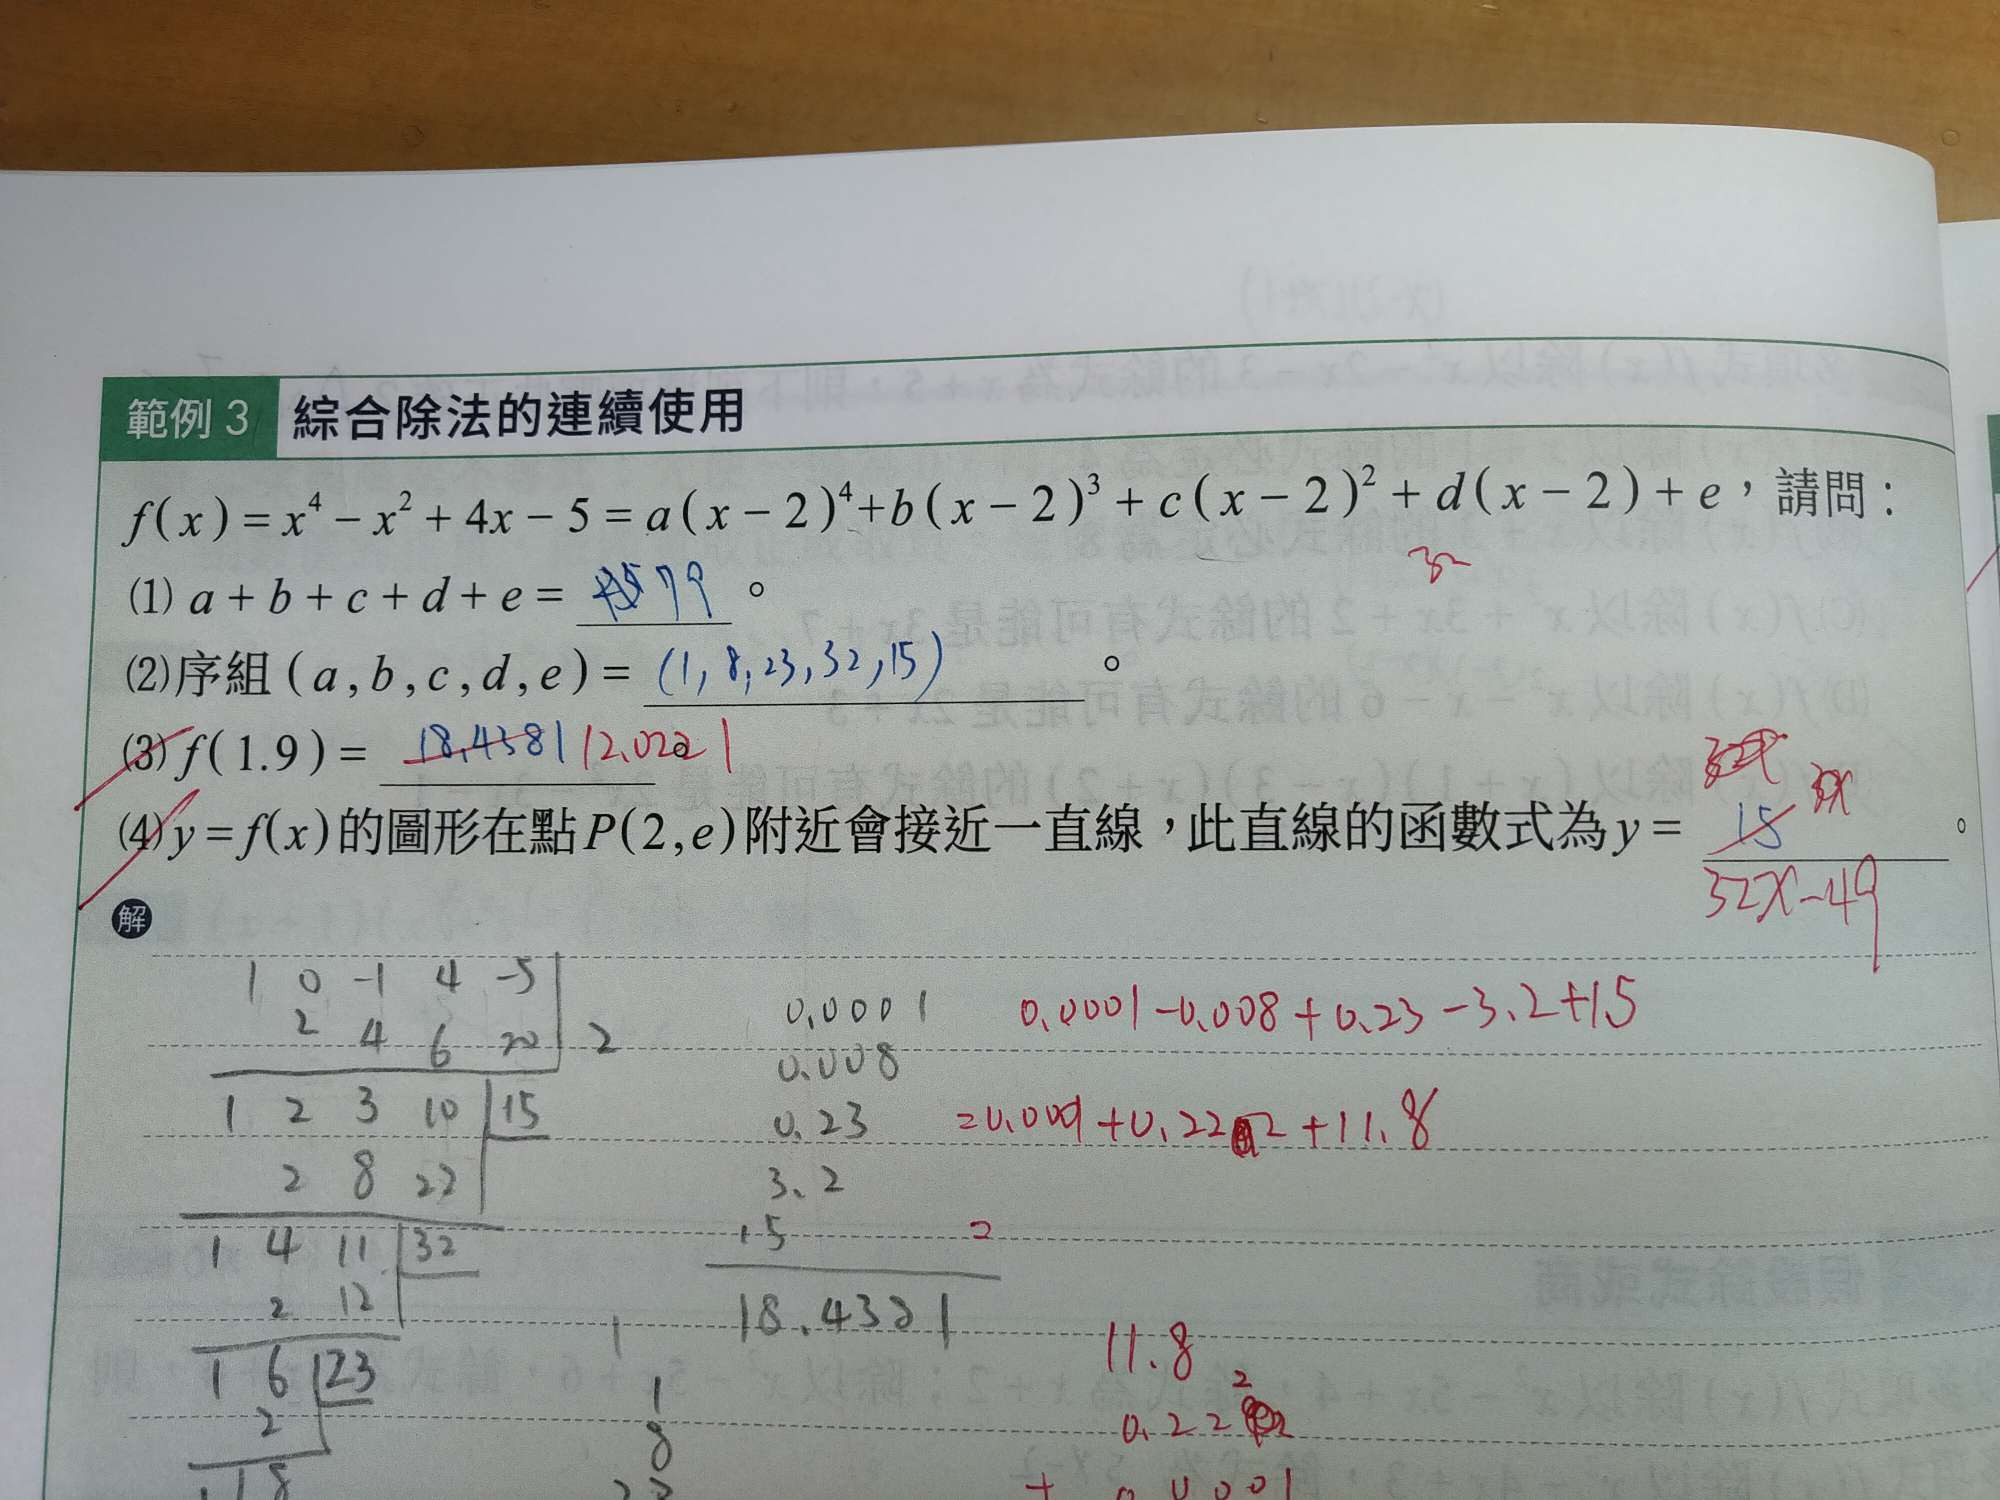 範例 3 綜合除法的連續使用
f(x)=x⁴-x²+4x-5=a(x-2)⁴+b(x-2)³+c(x-2)²+d(x-2)+e，請問：
32
(1) a+b+c+d+e= 79 。
(2)序組(a,b,c,d,e)= (1,8,23,32,15) 。
(3) f(1.9)= 18.4381 12.0221
(4) y=f(x)的圖形在點P(2,e)附近會接近一直線，此直線的函數式為y= 15 。
32x-49
解
1 0 -1 4 -5
2 4 6 20 2
1 2 3 10 15
2 8 22
1 4 11 32
2 12
1 6 23
2
1 8
0.0001
0.008
0.23
3.2
15
18.4381
1
1
8
0.0001-0.008+0.23-3.2+15
=0.0001+0.222+11.8
=
11.8
0.222
+ 0.0001